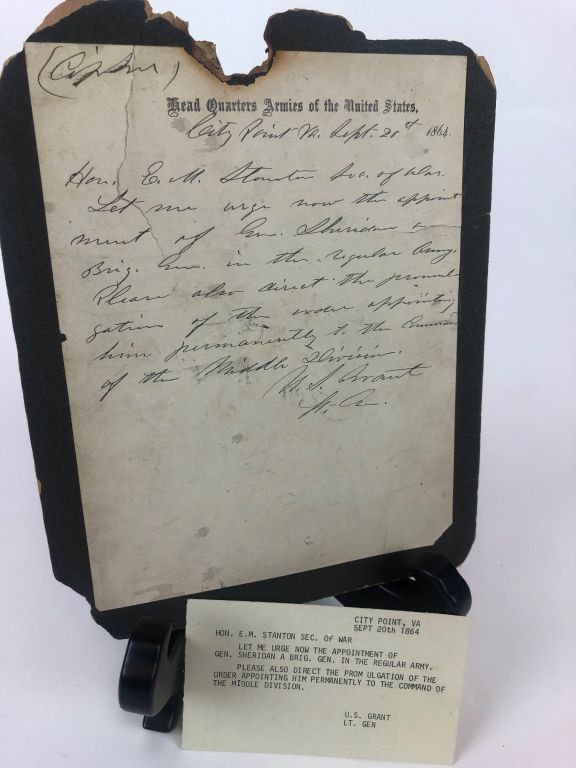 (Cipher)
Head Quarters Armies of the United States,
City Point Va. Sept. 20th 1864.
Hon. E. M. Stanton Sec. of War.
Let me urge now the appoint
ment of Gen. Sheridan a
Brig. Gen. in the regular Army.
Please also direct the promul
gation of the order appointing
him permanently to the Command
of the Middle Division.
U. S. Grant
Lt. Gn.
CITY POINT, VA
SEPT 20th 1864
HON. E.M. STANTON SEC. OF WAR
LET ME URGE NOW THE APPOINTMENT OF
GEN. SHERIDAN A BRIG. GEN. IN THE REGULAR ARMY.
PLEASE ALSO DIRECT THE PROM ULGATION OF THE
ORDER APPOINTING HIM PERMANENTLY TO THE COMMAND OF
THE MIDDLE DIVISION.
U.S. GRANT
LT. GEN